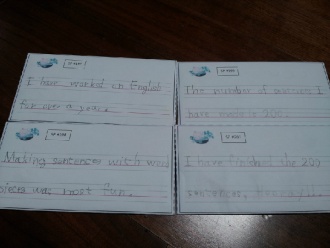 I have worked on English
for over a year.
The number of sentences I
have made is 200.
Making sentences with word
pieces was most fun.
I have finished the 200
sentences,